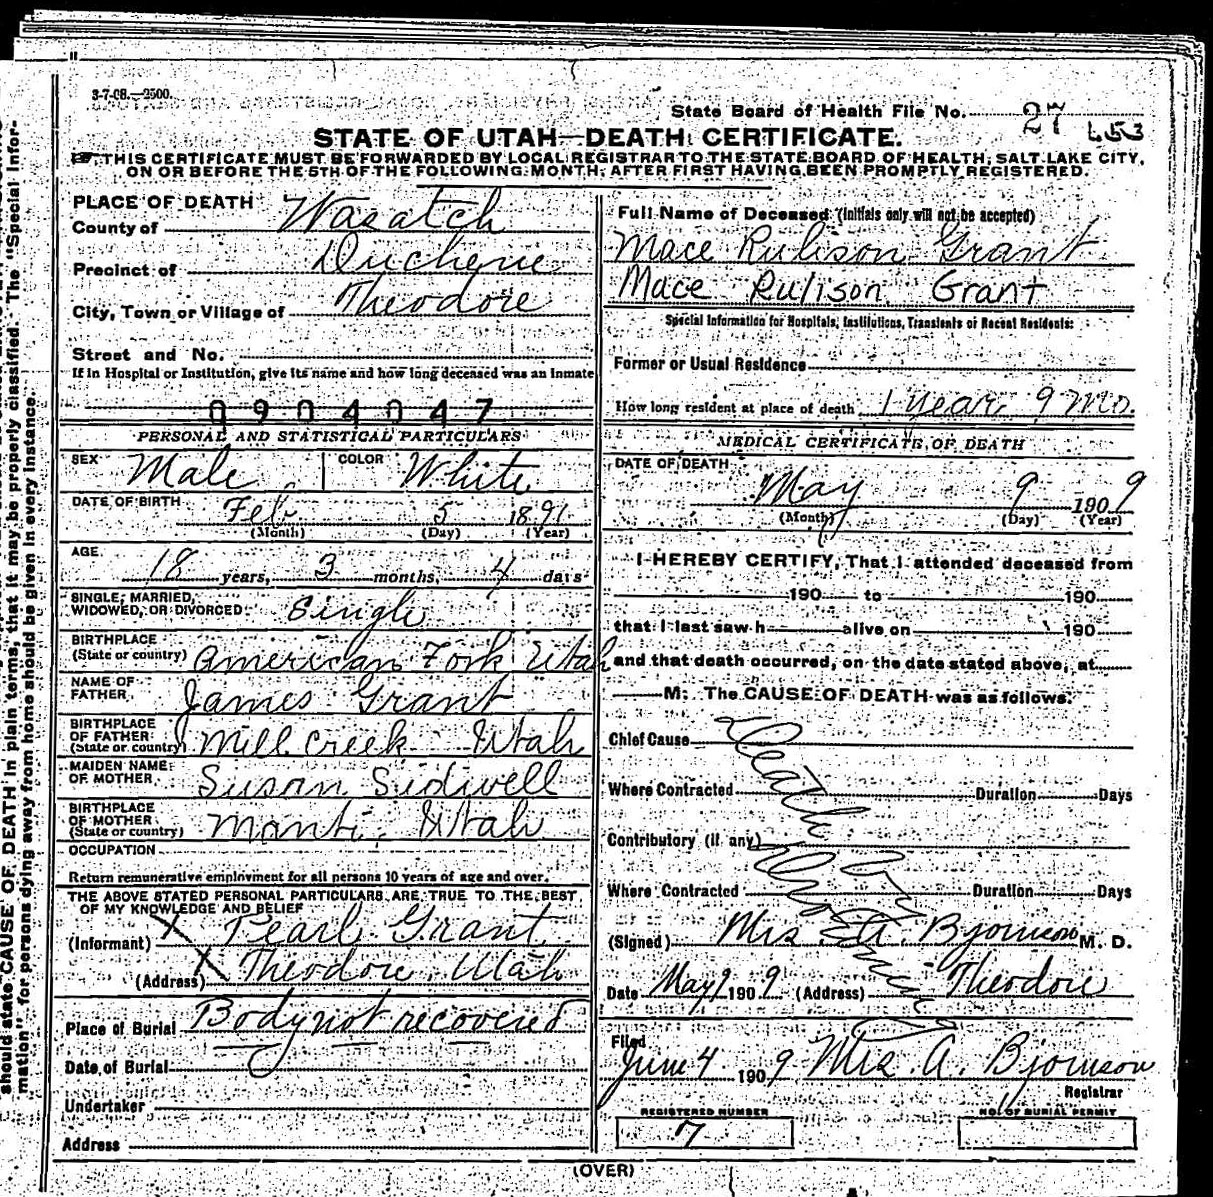 3-7-08.—2500.
State Board of Health File No. 27 L53
STATE OF UTAH—DEATH CERTIFICATE.
THIS CERTIFICATE MUST BE FORWARDED BY LOCAL REGISTRAR TO THE STATE BOARD OF HEALTH, SALT LAKE CITY,
ON OR BEFORE THE 5TH OF THE FOLLOWING MONTH, AFTER FIRST HAVING BEEN PROMPTLY REGISTERED.
PLACE OF DEATH
County of Wasatch
Precinct of Duchene
City, Town or Village of Theodore
Street and No.
If in Hospital or Institution, give its name and how long deceased was an inmate
0904047
PERSONAL AND STATISTICAL PARTICULARS
SEX Male COLOR White
DATE OF BIRTH Feb 5 1891
(Month) (Day) (Year)
AGE 18 years, 3 months, 4 days
SINGLE, MARRIED,
WIDOWED, OR DIVORCED: Single
BIRTHPLACE
(State or country) American Fork Utah
NAME OF
FATHER James Grant
BIRTHPLACE
OF FATHER
(State or country) Mill Creek Utah
MAIDEN NAME
OF MOTHER Susan Sidwell
BIRTHPLACE
OF MOTHER
(State or country) Manti, Utah
OCCUPATION
Return remunerative employment for all persons 10 years of age and over.
THE ABOVE STATED PERSONAL PARTICULARS ARE TRUE TO THE BEST
OF MY KNOWLEDGE AND BELIEF
(Informant) X Pearl Grant
(Address) X Theodore, Utah
Place of Burial Body not recovered
Date of Burial
Undertaker
Address
Full Name of Deceased (Initials only will not be accepted)
Mace Rulison Grant
Mace Rulison Grant
Special Information for Hospitals, Institutions, Transients or Recent Residents:
Former or Usual Residence
How long resident at place of death 1 year, 9 Mo.
MEDICAL CERTIFICATE OF DEATH
DATE OF DEATH
May 9 1909
(Month) (Day) (Year)
I HEREBY CERTIFY, That I attended deceased from
190 to 190
that I last saw h alive on 190
and that death occurred, on the date stated above, at
M. The CAUSE OF DEATH was as follows:
Chief Cause Death by Drowning
Where Contracted Duration Days
Contributory (if any)
Where Contracted Duration Days
(Signed) Mrs. A. Bjornson M. D.
Date May 9 1909 (Address) Theodore
Filed
June 4 1909 Mrs. A. Bjornson
Registrar
REGISTERED NUMBER
7
NO. OF BURIAL PERMIT
(OVER)
should state CAUSE OF DEATH in plain terms, that it may be properly classified. The "Special Infor-
mation" for persons dying away from home should be given in every instance.